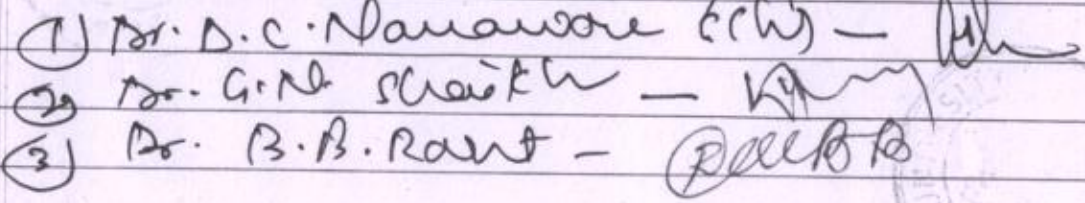 ① Dr. D. C. Nanaware (CH) —
② Dr. G. N. Shaikh —
③ Dr. B. B. Raut —